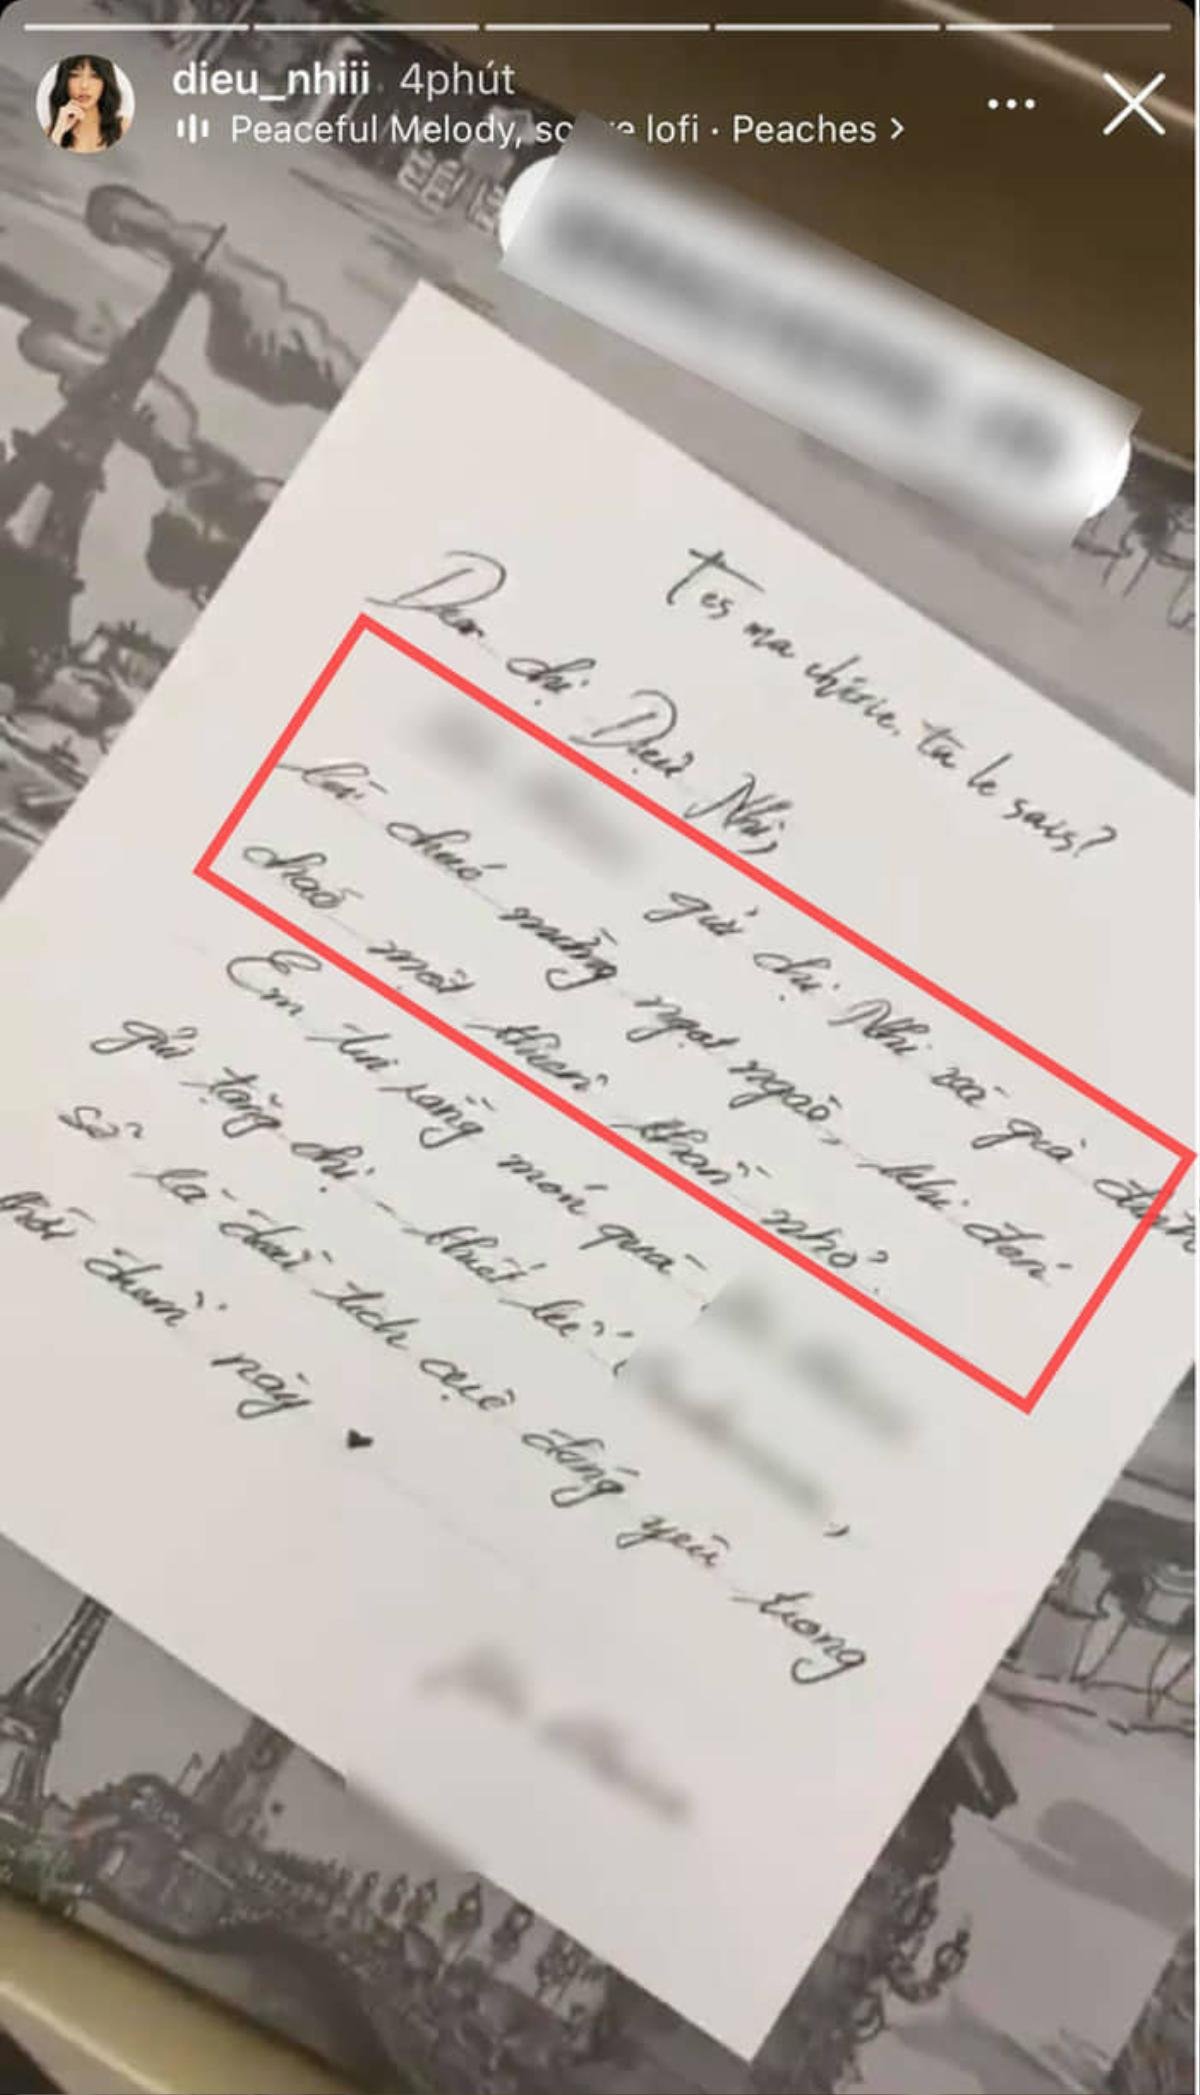 dieu_nhiii 4phút
Peaceful Melody, lofi · Peaches
T'es ma chérie, tu le sais?
Dear chị Diệu Nhi,
gửi chị Nhi và gia đình
lời chúc mừng ngọt ngào, khi đón
chào một thiên thần nhỏ.
Em tin rằng món quà
gửi tặng chị - thiết kế
sẽ là dấu tích cực đáng yêu trong
thời điểm này ♥